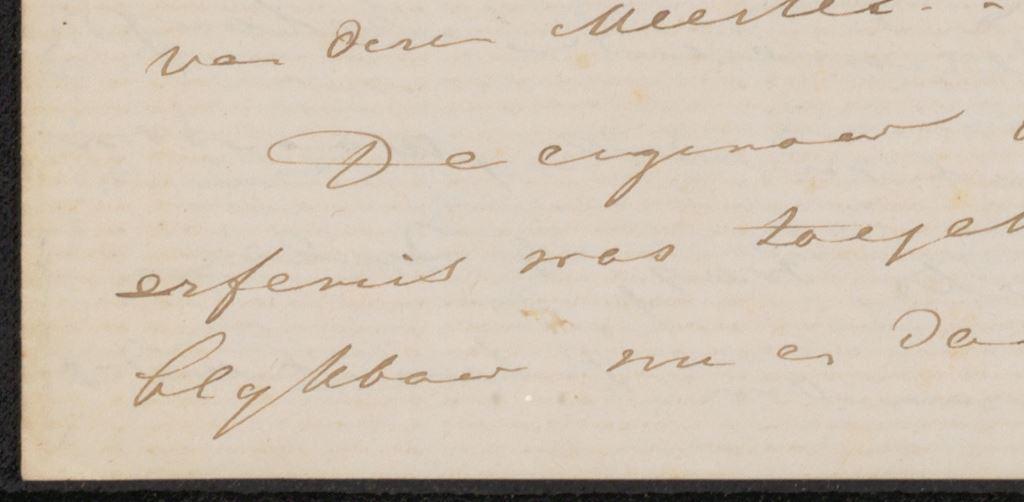 van deze Meester.
De eigenaar
erfenis was toege
blijkbaar nu en da